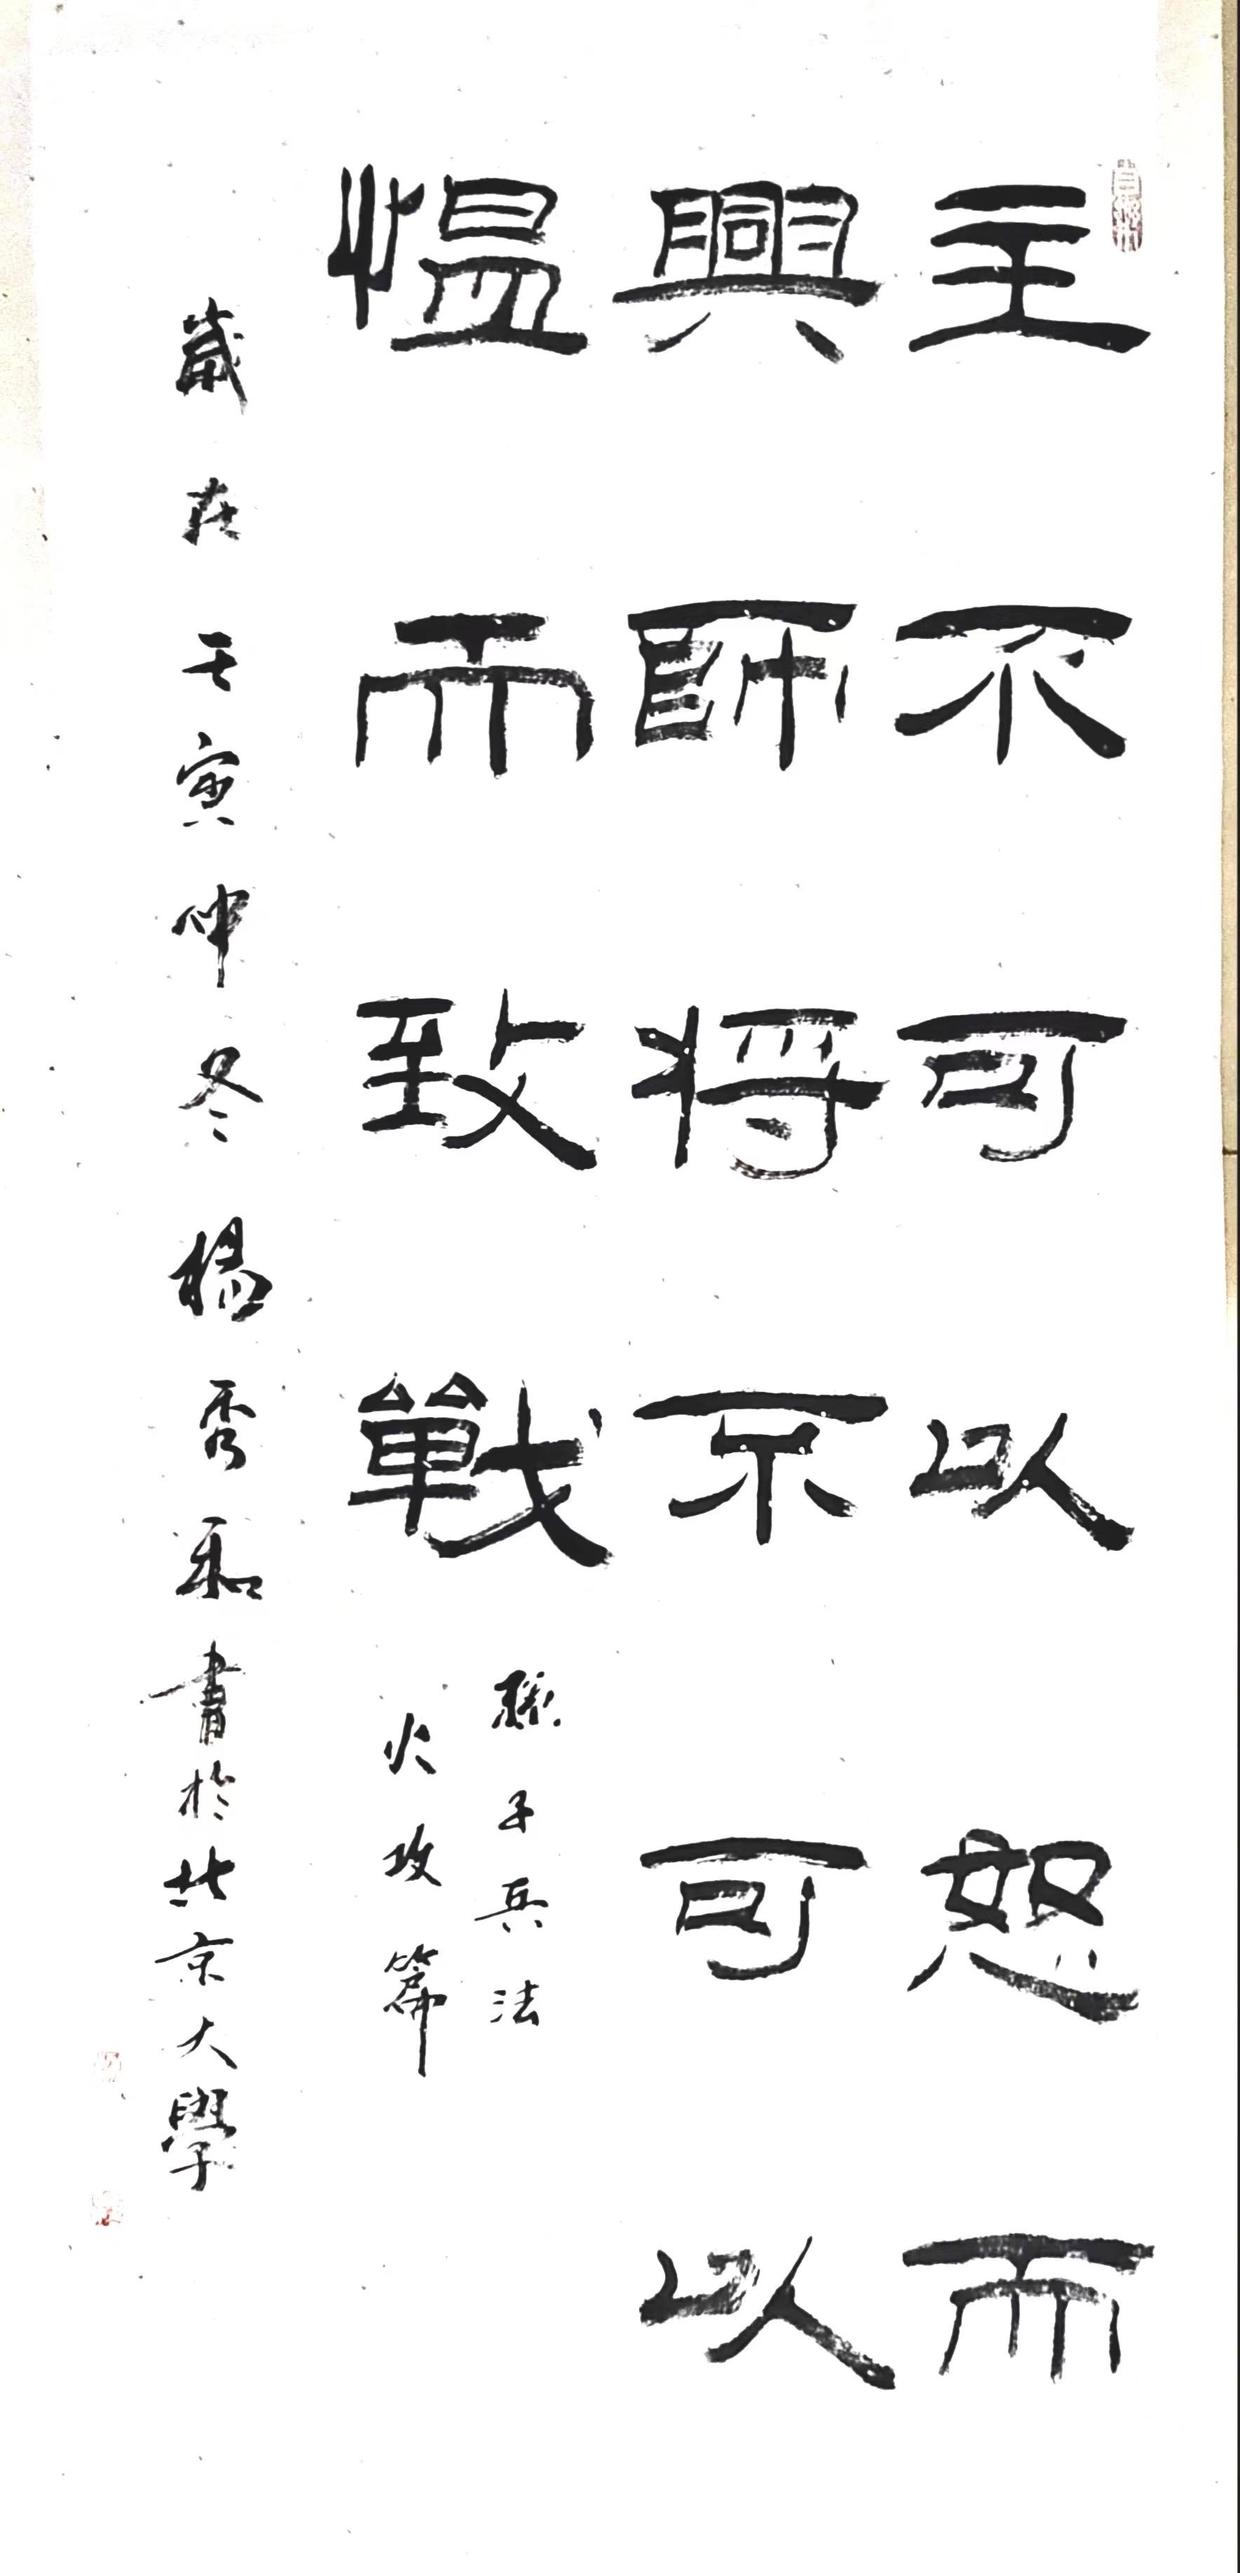 主不可以怒而
興師将不可以
愠而致戰
孫子兵法
火攻篇
歲在壬寅仲冬楊秀和書於北京大學